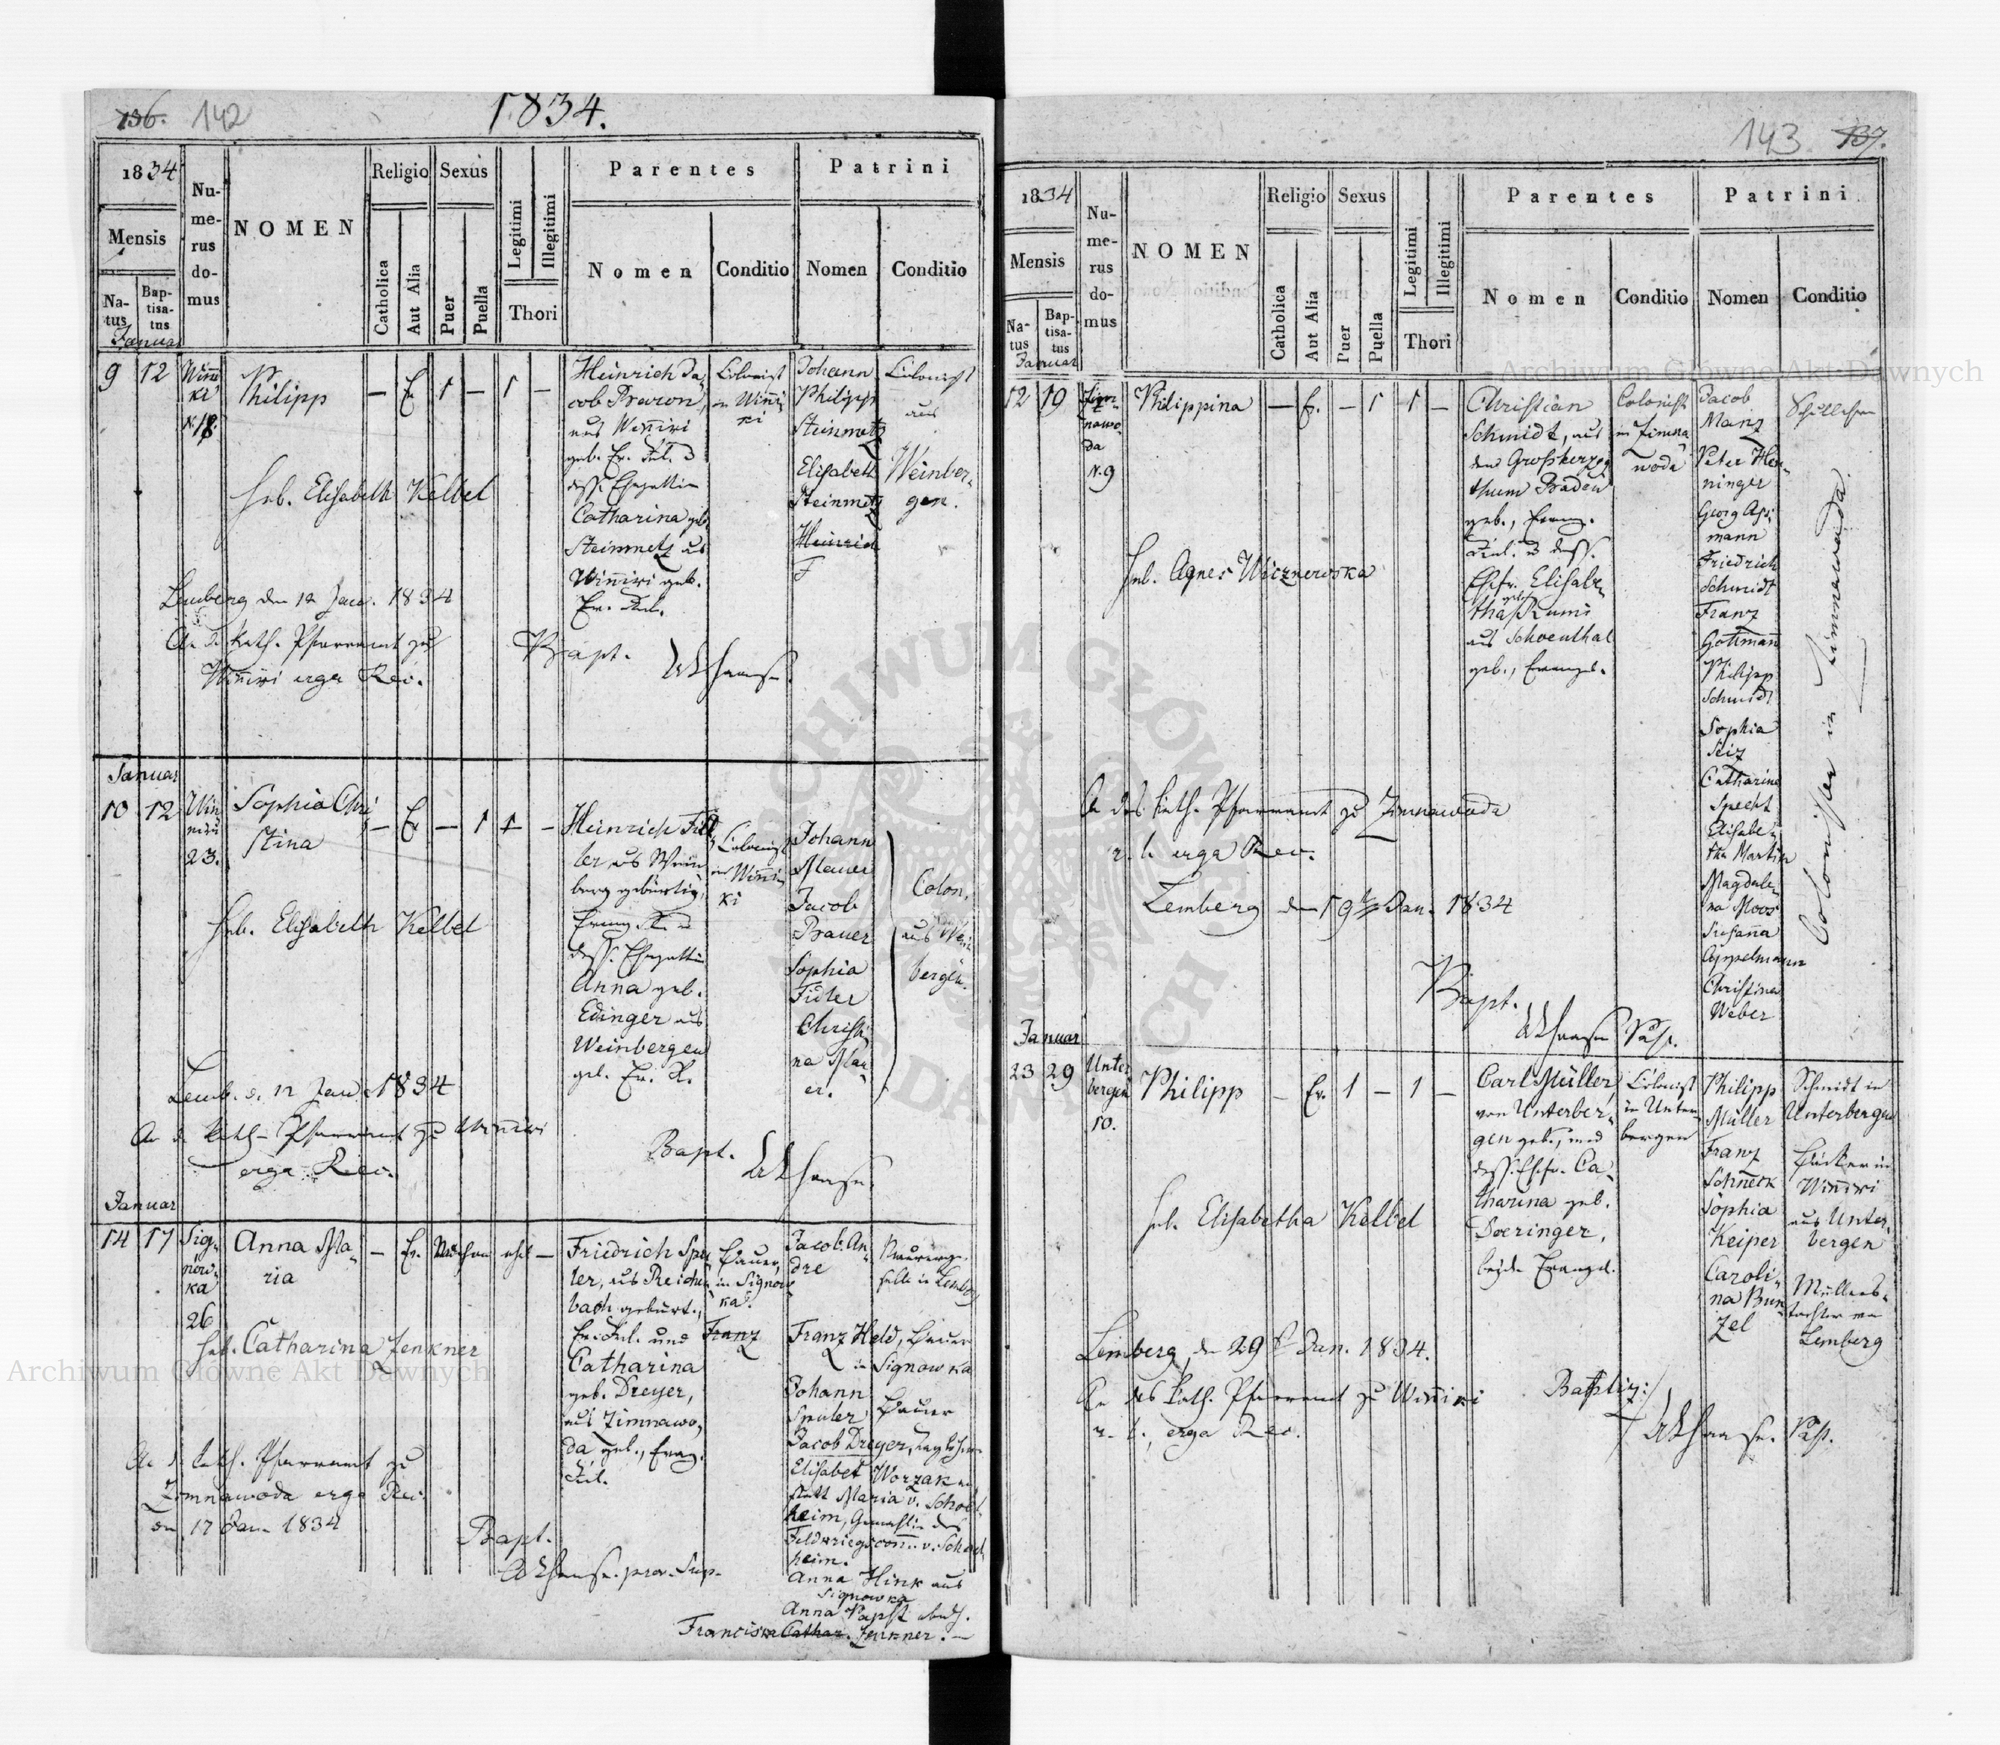 136. 142
1834.
1834
Mensis
Na-
tus
Bap-
tisa-
tus
Januar
Nu-
me-
rus
do-
mus
NOMEN
Religio
Catholica
Aut Alia
Sexus
Puer
Puella
Legitimi
Illegitimi
Thori
Parentes
Nomen
Conditio
Patrini
Nomen
Conditio
9 12
N. 18
Philipp
— Ev. 1 — 1 —
Heinrich Ja-
cob
aus Winniki
geb. Ev.
dess. Ehegattin
Catharina geb.
Steinmetz aus
Winniki geb.
Ev.
Colonist
in Winni-
ki
Johann
Philipp
Steinmetz
Elisabeth
Steinmetz
Heinrich
F
Colonist
aus
Weinber-
gen.
Heb. Elisabeth Kelbel
Lemberg den 12 Jan. 1834
An d. kath. Pfarramt zu
Winniki erga Rec.
Bapt.
Januar
10 12
Win-
niki
23.
Sophia Chri-
stina
— Ev. — 1 1 —
Heinrich
ler aus Wein-
berg gebürtig,
Evang.
dess. Ehegattin
Anna geb.
Edinger aus
Weinbergen
geb. Ev.
Colonist
in Winni-
ki
Johann
Mauer
Jacob
Bauer
Sophia
Fidler
Christi-
na Mau-
er.
Colon.
aus Wein-
bergen.
Heb. Elisabeth Kelbel
Lemb. d. 12 Jan. 1834
An d. kath. Pfarramt zu Winniki
erga Rec.
Bapt.
Januar
14 17
Sig-
now-
ka
26
Anna Ma-
ria
— Ev. Mädchen ehel. —
Friedrich Spu-
ler, aus Reichen-
bach gebürt.,
Ev. und
Catharina
geb. Dreyer,
aus Zimnawo-
da geb., Evang.
Bauer
in Signow-
ka.
Franz
Jacob An-
dre
Maurerge-
selle in Lemberg
Franz Held, Bauer
in Signowka
Johann
Spuler Bauer
Jacob Dreyer,
Elisabet Worzak
statt Maria v. Schoel-
heim, Gemahlin des
heim.
Anna Hink aus
Signowka
Anna Papst
Francisca Cathar. Zenkner. —
Heb. Catharina Zenkner
An d. kath. Pfarramt zu
Zimnawoda erga Rec.
den 17 Jan 1834
Bapt.
143 137.
1834
Mensis
Na-
tus
Bap-
tisa-
tus
Januar
Nu-
me-
rus
do-
mus
NOMEN
Religio
Catholica
Aut Alia
Sexus
Puer
Puella
Legitimi
Illegitimi
Thori
Parentes
Nomen
Conditio
Patrini
Nomen
Conditio
12 19
nawo-
da
N. 9
Philippina
— Ev. — 1 1 —
Christian
Schmidt, aus
dem Großherzog-
thum Baden
geb., Evang.
Ehefr. Elisabe-
tha geb. Rumi
aus Schoenthal
geb., Evangel.
Colonist
in Zimna
woda
Jacob
Manz
Peter Hen-
ninger
Georg
mann
Friedrich
Schmidt
Franz
Gottmann
Philipp
Schmidt
Sophia
Seiz
Catharina
Specht
Elisabe-
tha Martin
Magdale-
na Moos
Susanna
Appelmann
Christina
Weber
Colonisten in Zimnawoda
Heb. Agnes Wisznewska
An das kath. Pfarramt zu Zimnawoda
r. l. erga Rec.
Lemberg den 19 Jan. 1834
Bapt.
Januar
23 29
Unter-
bergen
10.
Philipp
— Ev. 1 — 1 —
Carl Müller,
von Unterber-
gen geb., und
dess. Ehefr. Ca-
tharina geb.
Doeringer,
beide Evangel.
Colonist
in Unter-
bergen
Philipp
Müller
Franz
Schneck
Sophia
Keiper
Caroli-
na Bun-
zel
Schmidt in
Unterbergen
Bäcker in
Winniki
aus Unter-
bergen
Müllers-
tochter von
Lemberg
Heb. Elisabetha Kelbel
Lemberg, den 29 Jan. 1834.
An das kath. Pfarramt zu Winniki
r. l., erga Rec.
Baptiz:
Archiwum Główne Akt Dawnych
Archiwum Główne Akt Dawnych
ARCHIWUM GŁÓWNE AKT DAWNYCH